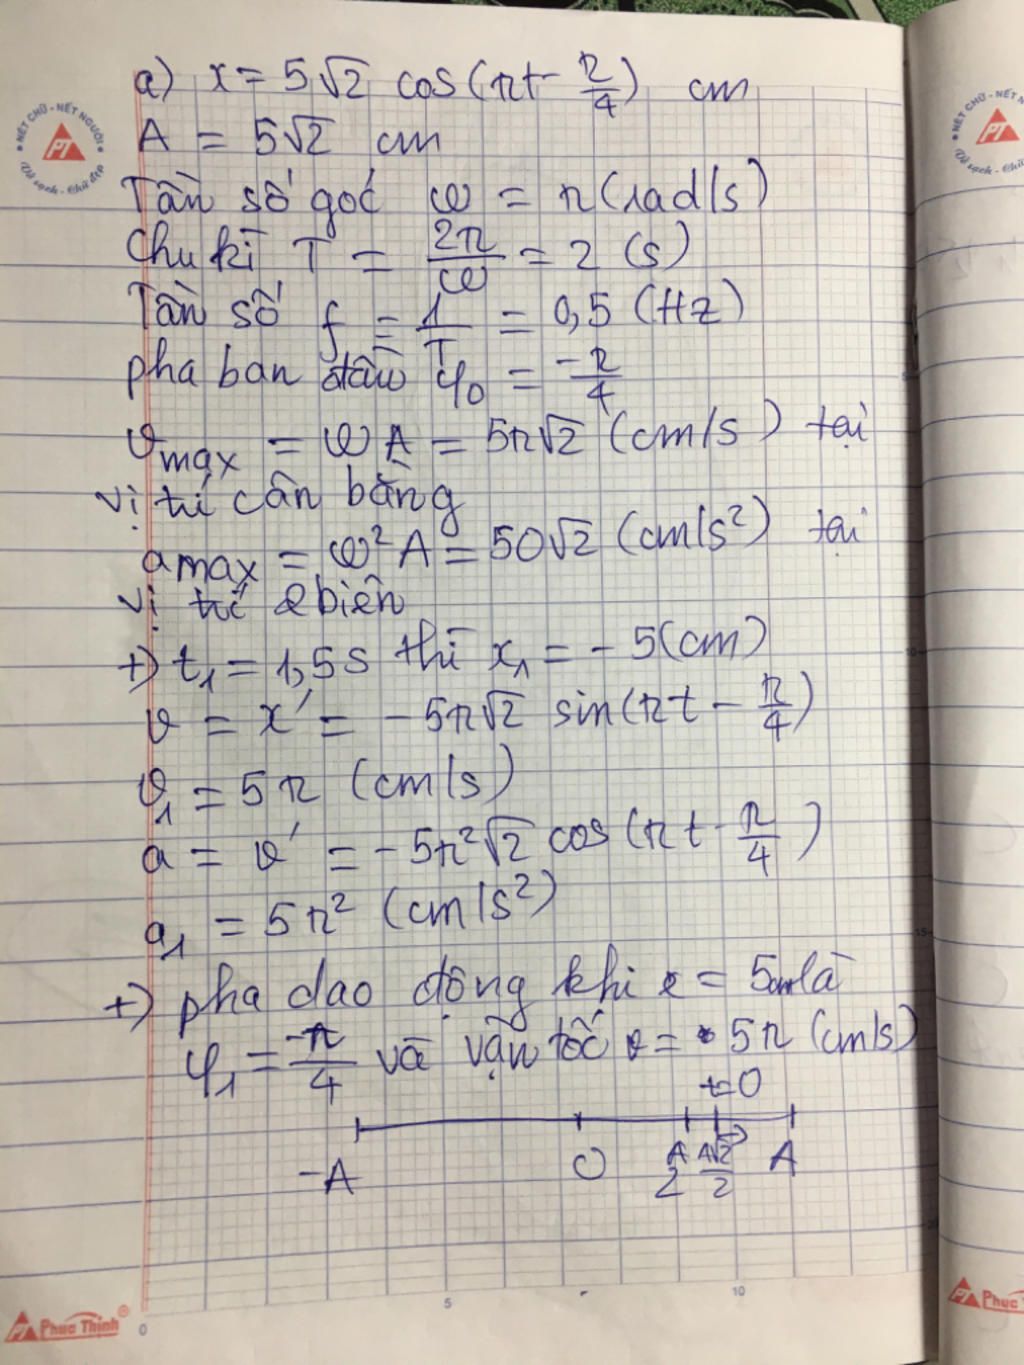 a) x = 5√2 cos(πt - π/4) cm
A = 5√2 cm
Tần số góc ω = π (rad/s)
Chu kì T = 2π/ω = 2 (s)
Tần số f = 1/T = 0,5 (Hz)
pha ban đầu φ0 = -π/4
vmax = ωA = 5π√2 (cm/s) tại
vị trí cân bằng
amax = ω²A = 50√2 (cm/s²) tại
vị trí biên
+) t1 = 1,5s thì x1 = - 5(cm)
v = x' = -5π√2 sin(πt - π/4)
v1 = 5π (cm/s)
a = v' = -5π²√2 cos(πt - π/4)
a1 = 5π² (cm/s²)
+) pha dao động khi x = 5cm là
φ1 = -π/4 và vận tốc v = 5π (cm/s)
t=0
-A O A/2 A√2/2 A
NÉT CHỮ - NẾT NGƯỜI
PT
Vở sạch - Chữ đẹp
NÉT CHỮ - NẾT N
PT
Vở sạch - Chữ
10
15
PT Phuc Thinh®
0 5 10
PT Phuc